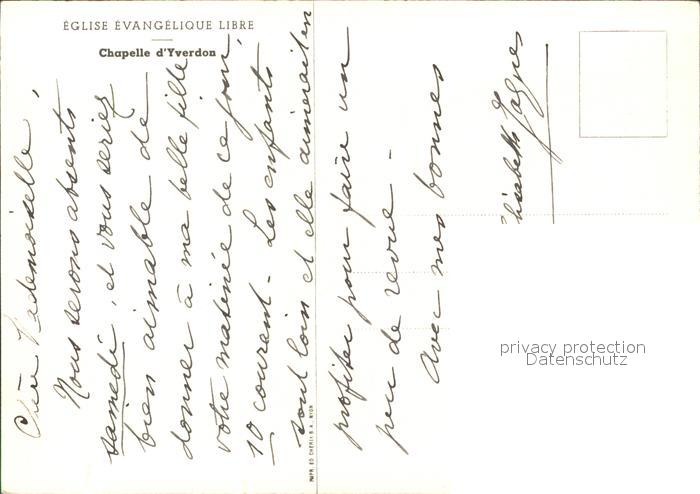 ÉGLISE ÉVANGÉLIQUE LIBRE
Chapelle d'Yverdon
Chère Mademoiselle,
Nous serons absents
samedi, et vous seriez
bien aimable de
donner à ma belle fille
votre matinée de ce jour,
10 courant - Les enfants
sont loin et elle aimerait en
profiter pour faire un
peu de revue -
Avec mes bonnes
PAPR. ED. CHERIX S. A., NYON
privacy protection
Datenschutz